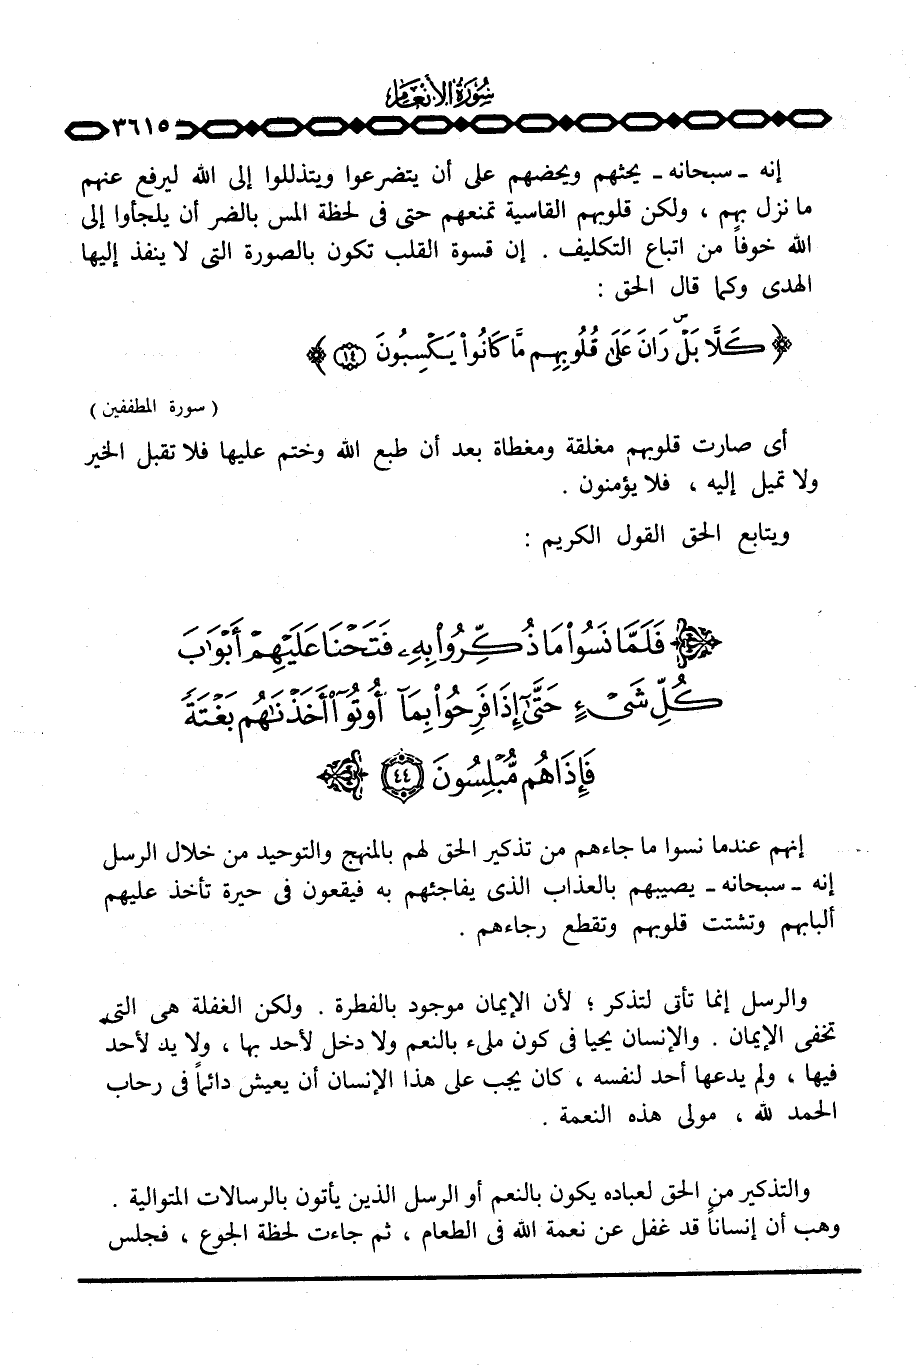 سُورَةُ الأَنْعَامِ
٣٦١٥
إنه ـ سبحانه ـ يحثهم ويحضهم على أن يتضرعوا ويتذللوا إلى الله ليرفع عنهم
ما نزل بهم ، ولكن قلوبهم القاسية تمنعهم حتى فى لحظة المس بالضر أن يلجأوا إلى
الله خوفاً من اتباع التكليف . إن قسوة القلب تكون بالصورة التى لا ينفذ إليها
الهدى وكما قال الحق :
﴿ كَلَّا بَلْ ۜ رَانَ عَلَىٰ قُلُوبِهِم مَّا كَانُوا۟ يَكْسِبُونَ ١٤ ﴾
( سورة المطففين )
أى صارت قلوبهم مغلقة ومغطاة بعد أن طبع الله وختم عليها فلا تقبل الخير
ولا تميل إليه ، فلا يؤمنون .
ويتابع الحق القول الكريم :
﴿ فَلَمَّا نَسُوا۟ مَا ذُكِّرُوا۟ بِهِۦ فَتَحْنَا عَلَيْهِمْ أَبْوَٰبَ
كُلِّ شَىْءٍ حَتَّىٰٓ إِذَا فَرِحُوا۟ بِمَآ أُوتُوٓا۟ أَخَذْنَٰهُم بَغْتَةً
فَإِذَا هُم مُّبْلِسُونَ ٤٤ ﴾
إنهم عندما نسوا ما جاءهم من تذكير الحق لهم بالمنهج والتوحيد من خلال الرسل
إنه ـ سبحانه ـ يصيبهم بالعذاب الذى يفاجئهم به فيقعون فى حيرة تأخذ عليهم
ألبابهم وتشتت قلوبهم وتقطع رجاءهم .
والرسل إنما تأتى لتذكر ؛ لأن الإيمان موجود بالفطرة . ولكن الغفلة هى التى
تخفى الإيمان . والإنسان يحيا فى كون ملىء بالنعم ولا دخل لأحد بها ، ولا يد لأحد
فيها ، ولم يدعها أحد لنفسه ، كان يجب على هذا الإنسان أن يعيش دائماً فى رحاب
الحمد لله ، مولى هذه النعمة .
والتذكير من الحق لعباده يكون بالنعم أو الرسل الذين يأتون بالرسالات المتوالية .
وهب أن إنساناً قد غفل عن نعمة الله فى الطعام ، ثم جاءت لحظة الجوع ، فجلس